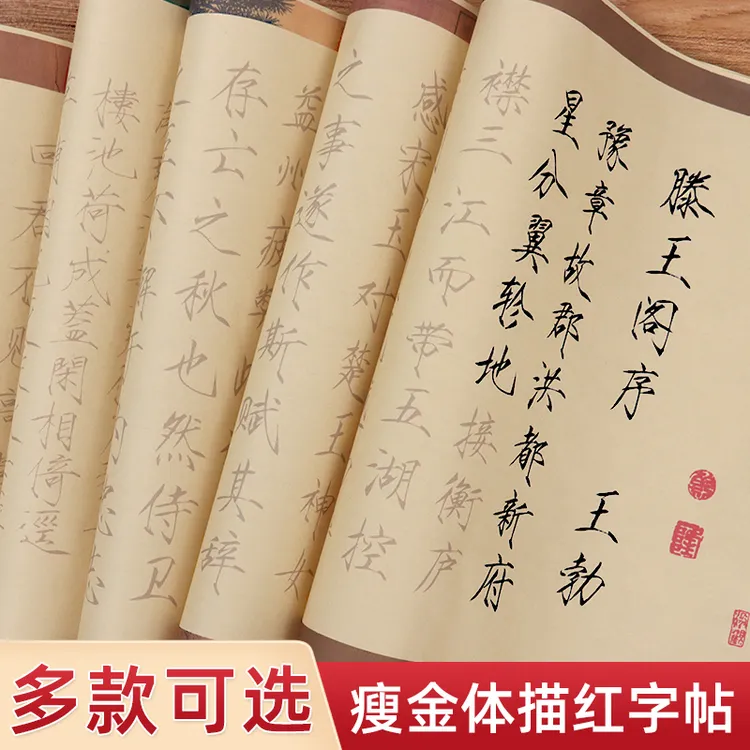 滕王阁序
王勃
豫章故郡洪都新府
星分翼轸地接衡庐
襟三江而带五湖控
感宋玉对楚王神女
之事遂作斯赋其辞
益州疲弊此
存亡之秋也然侍卫
樓池荷成蓋閑相倚逕
君不
多款可选
瘦金体描红字帖